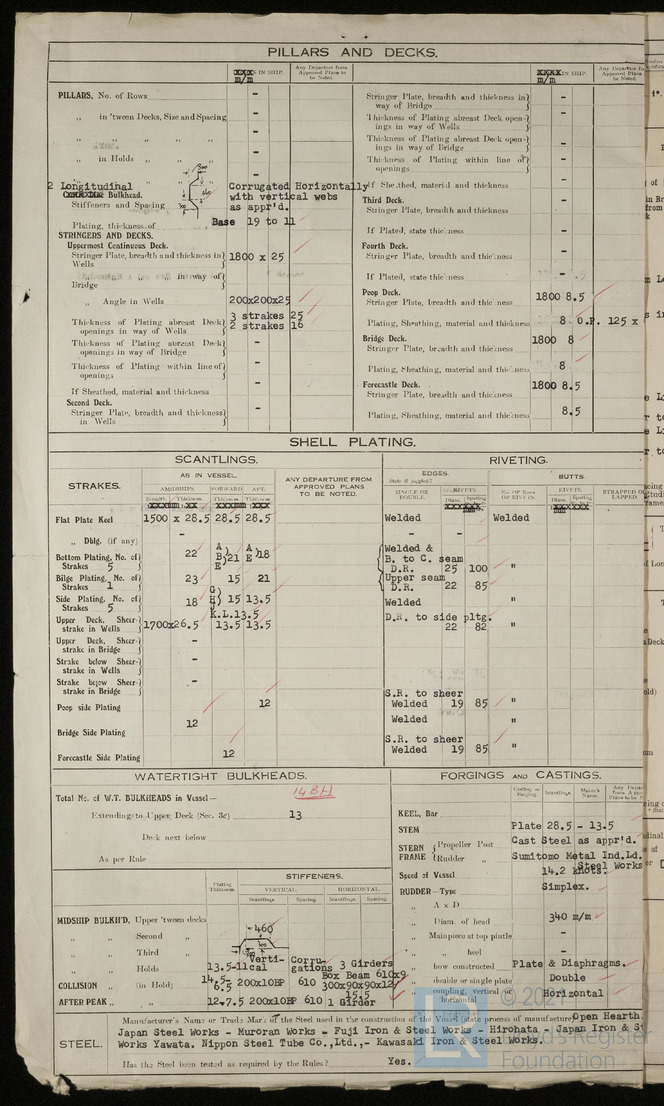 PILLARS AND DECKS.
m/m IN SHIP.
Any Departure from Approved Plans to be Noted.
PILLARS, No. of Rows -
„ in 'tween Decks, Size and Spacing -
„ „ „ „ -
„ in Holds „ „ -
2 Longitudinal Bulkhead. Corrugated Horizontally
Stiffeners and Spacing with vertical webs
as appr'd.
Plating, thickness of Base 19 to 11
STRINGERS AND DECKS.
Uppermost Continuous Deck.
Stringer Plate, breadth and thickness in Wells 1800 x 25
„ „ „ „ in way of Bridge -
„ Angle in Wells 200x200x25
Thickness of Plating abreast Deck openings in way of Wells 3 strakes 25
2 strakes 16
Thickness of Plating abreast Deck openings in way of Bridge -
Thickness of Plating within line of openings -
If Sheathed, material and thickness -
Second Deck.
Stringer Plate, breadth and thickness in Wells -
m/m IN SHIP.
Any Departure from Approved Plans to be Noted.
Stringer Plate, breadth and thickness in way of Bridge -
Thickness of Plating abreast Deck openings in way of Wells -
Thickness of Plating abreast Deck openings in way of Bridge -
Thickness of Plating within line of openings -
If Sheathed, material and thickness -
Third Deck.
Stringer Plate, breadth and thickness -
If Plated, state thickness -
Fourth Deck.
Stringer Plate, breadth and thickness -
If Plated, state thickness -
Poop Deck.
Stringer Plate, breadth and thickness 1800 8.5
Plating, Sheathing, material and thickness 8 O.P. 125 x
Bridge Deck.
Stringer Plate, breadth and thickness 1800 8
Plating, Sheathing, material and thickness 8
Forecastle Deck.
Stringer Plate, breadth and thickness 1800 8.5
Plating, Sheathing, material and thickness 8.5
SHELL PLATING.
SCANTLINGS.
RIVETING.
STRAKES.
AS IN VESSEL.
AMIDSHIPS. FORWARD. AFT.
Breadth. Thickness. Thickness. Thickness.
ANY DEPARTURE FROM APPROVED PLANS TO BE NOTED.
EDGES.
State if joggled?
SINGLE OR DOUBLE.
RIVETS.
Diam. Spacing
BUTTS.
No. OF ROWS OF RIVETS.
RIVETS.
Diam.
STRAPPED OR
Flat Plate Keel 1500 x 28.5 28.5 28.5 Welded Welded
„ Dblg. (if any) - - -
Bottom Plating, No. of Strakes 5 22 A B E 21 A E 18 Welded & B. to C. seam D.R. 25 100 "
Bilge Plating, No. of Strakes 1 23 15 21 Upper seam D.R. 22 85 "
Side Plating, No. of Strakes 5 18 G H 15 13.5 Welded "
K.L.13.5
Upper Deck, Sheerstrake in Wells 1700x26.5 13.5 13.5 D.R. to side pltg. 22 82 "
Upper Deck, Sheerstrake in Bridge -
Strake below Sheerstrake in Wells -
Strake below Sheerstrake in Bridge -
Poop side Plating 12 S.R. to sheer Welded 19 85 "
Bridge Side Plating 12 Welded "
Forecastle Side Plating 12 S.R. to sheer Welded 19 85 "
WATERTIGHT BULKHEADS.
Total No. of W.T. BULKHEADS in Vessel— 14 BH
Extending to Upper Deck (Sec. 3c) 13
Deck next below
As per Rule
Plating Thickness.
STIFFENERS.
VERTICAL. HORIZONTAL.
Scantlings. Spacing. Scantlings. Spacing.
MIDSHIP BULKH'D, Upper 'tween decks
„ „ Second „ 460
„ „ Third „
„ „ Holds 13.5-11 Vertical Corrugations 3 Girders
COLLISION „ (in Hold) 14.5-6.5 200x10BP 610 Box Beam 610x9 300x90x90x12
AFTER PEAK „ „ 12-7.5 200x10BP 610 1 Girder
FORGINGS AND CASTINGS.
Casting or Forging. Scantlings. Maker's Name.
KEEL, Bar
STEM Plate 28.5 - 13.5
STERN FRAME Propeller Post Cast Steel as appr'd.
Rudder „ Sumitomo Metal Ind.Ld. Steel Works
Speed of Vessel 14.2 knots.
RUDDER—Type Simplex.
„ A x D
„ Diam. of head 340 m/m
„ Mainpiece at top pintle -
„ „ heel -
„ how constructed Plate & Diaphragms.
„ double or single plate Double
„ coupling, vertical or horizontal Horizontal
STEEL.
Manufacturer's Name or Trade Mark of the Steel used in the construction of the Vessel (state process of manufacture) Open Hearth
Japan Steel Works - Muroran Works - Fuji Iron & Steel Works - Hirohata - Japan Iron & St
Works Yawata. Nippon Steel Tube Co.,Ltd.,- Kawasaki Iron & Steel Works.
Has the Steel been tested as required by the Rules? Yes.
LR
Lloyd's Register
Foundation